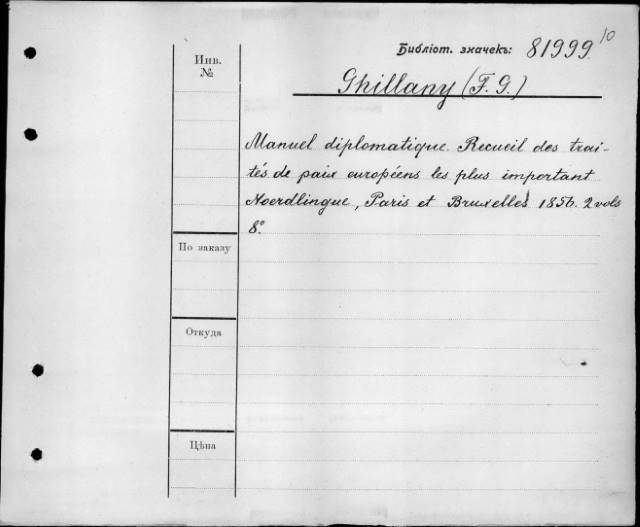 Библіот. значекъ: 81999 10
Инв.
№
Ghillany (F. G.)
Manuel diplomatique. Recueil des trai-
tés de paix européens les plus important
Noerdlingue, Paris et Bruxelles 1856. 2 vols
8°.
По заказу
Откуда
Цѣна